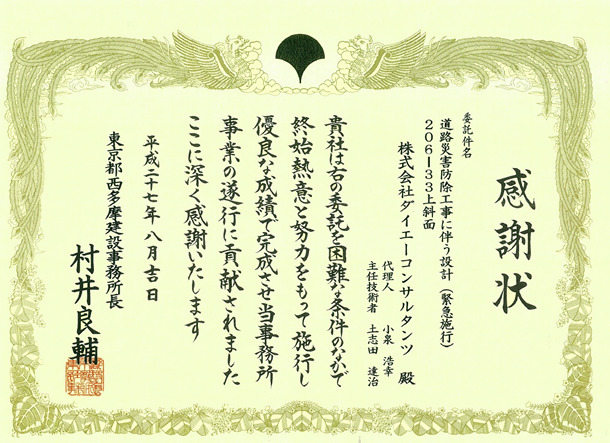 感謝状
委託件名
道路災害防除工事に伴う設計（緊急施行）
206-33上斜面
株式会社ダイエーコンサルタンツ 殿
代理人 小泉 浩幸
主任技術者 土志田 達治
貴社は右の委託を困難な条件のなかで
終始熱意と努力をもって施行し
優良な成績で完成させ当事務所
事業の遂行に貢献されました
ここに深く感謝いたします
平成二十七年八月吉日
東京都西多摩建設事務所長
村井良輔